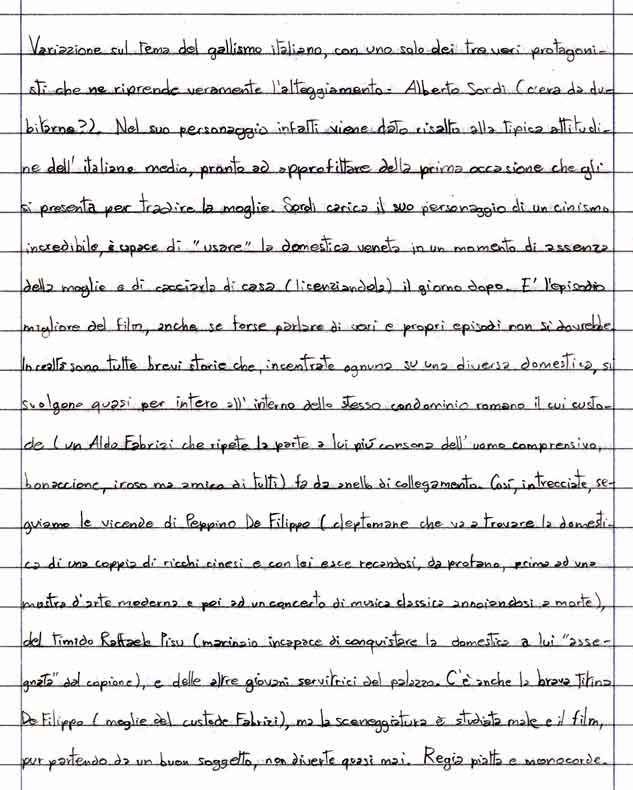 Variazione sul tema del gallismo italiano, con uno solo dei tre veri protagoni-
sti che ne riprende veramente l'atteggiamento - Alberto Sordi (c'era da du-
bitarne?). Nel suo personaggio infatti viene dato risalto alla tipica attitudi-
ne dell'italiano medio, pronto ad approfittare della prima occasione che gli
si presenta per tradire la moglie. Sordi carica il suo personaggio di un cinismo
incredibile, è capace di "usare" la domestica veneta in un momento di assenza
della moglie e di cacciarla di casa (licenziandola) il giorno dopo. E' l'episodio
migliore del film, anche se forse parlare di veri e propri episodi non si dovrebbe.
In realtà sono tutte brevi storie che, incentrate ognuna su una diversa domestica, si
svolgono quasi per intero all'interno dello stesso condominio romano il cui custo-
de (un Aldo Fabrizi che ripete la parte a lui più consona dell'uomo comprensivo,
bonaccione, iroso ma amico di tutti) fa da anello di collegamento. Così, intrecciate, se-
guiamo le vicende di Peppino De Filippo (cleptomane che va a trovare la domesti-
ca di una coppia di ricchi cinesi e con lei esce recandosi, da profano, prima ad una
mostra d'arte moderna e poi ad un concerto di musica classica annoiandosi a morte),
del timido Raffaele Pisu (marinaio incapace di conquistare la domestica a lui "asse-
gnata" dal copione), e delle altre giovani servitrici del palazzo. C'è anche la brava Titina
De Filippo (moglie del custode Fabrizi), ma la sceneggiatura è studiata male e il film,
pur partendo da un buon soggetto, non diverte quasi mai. Regia piatta e monocorde.